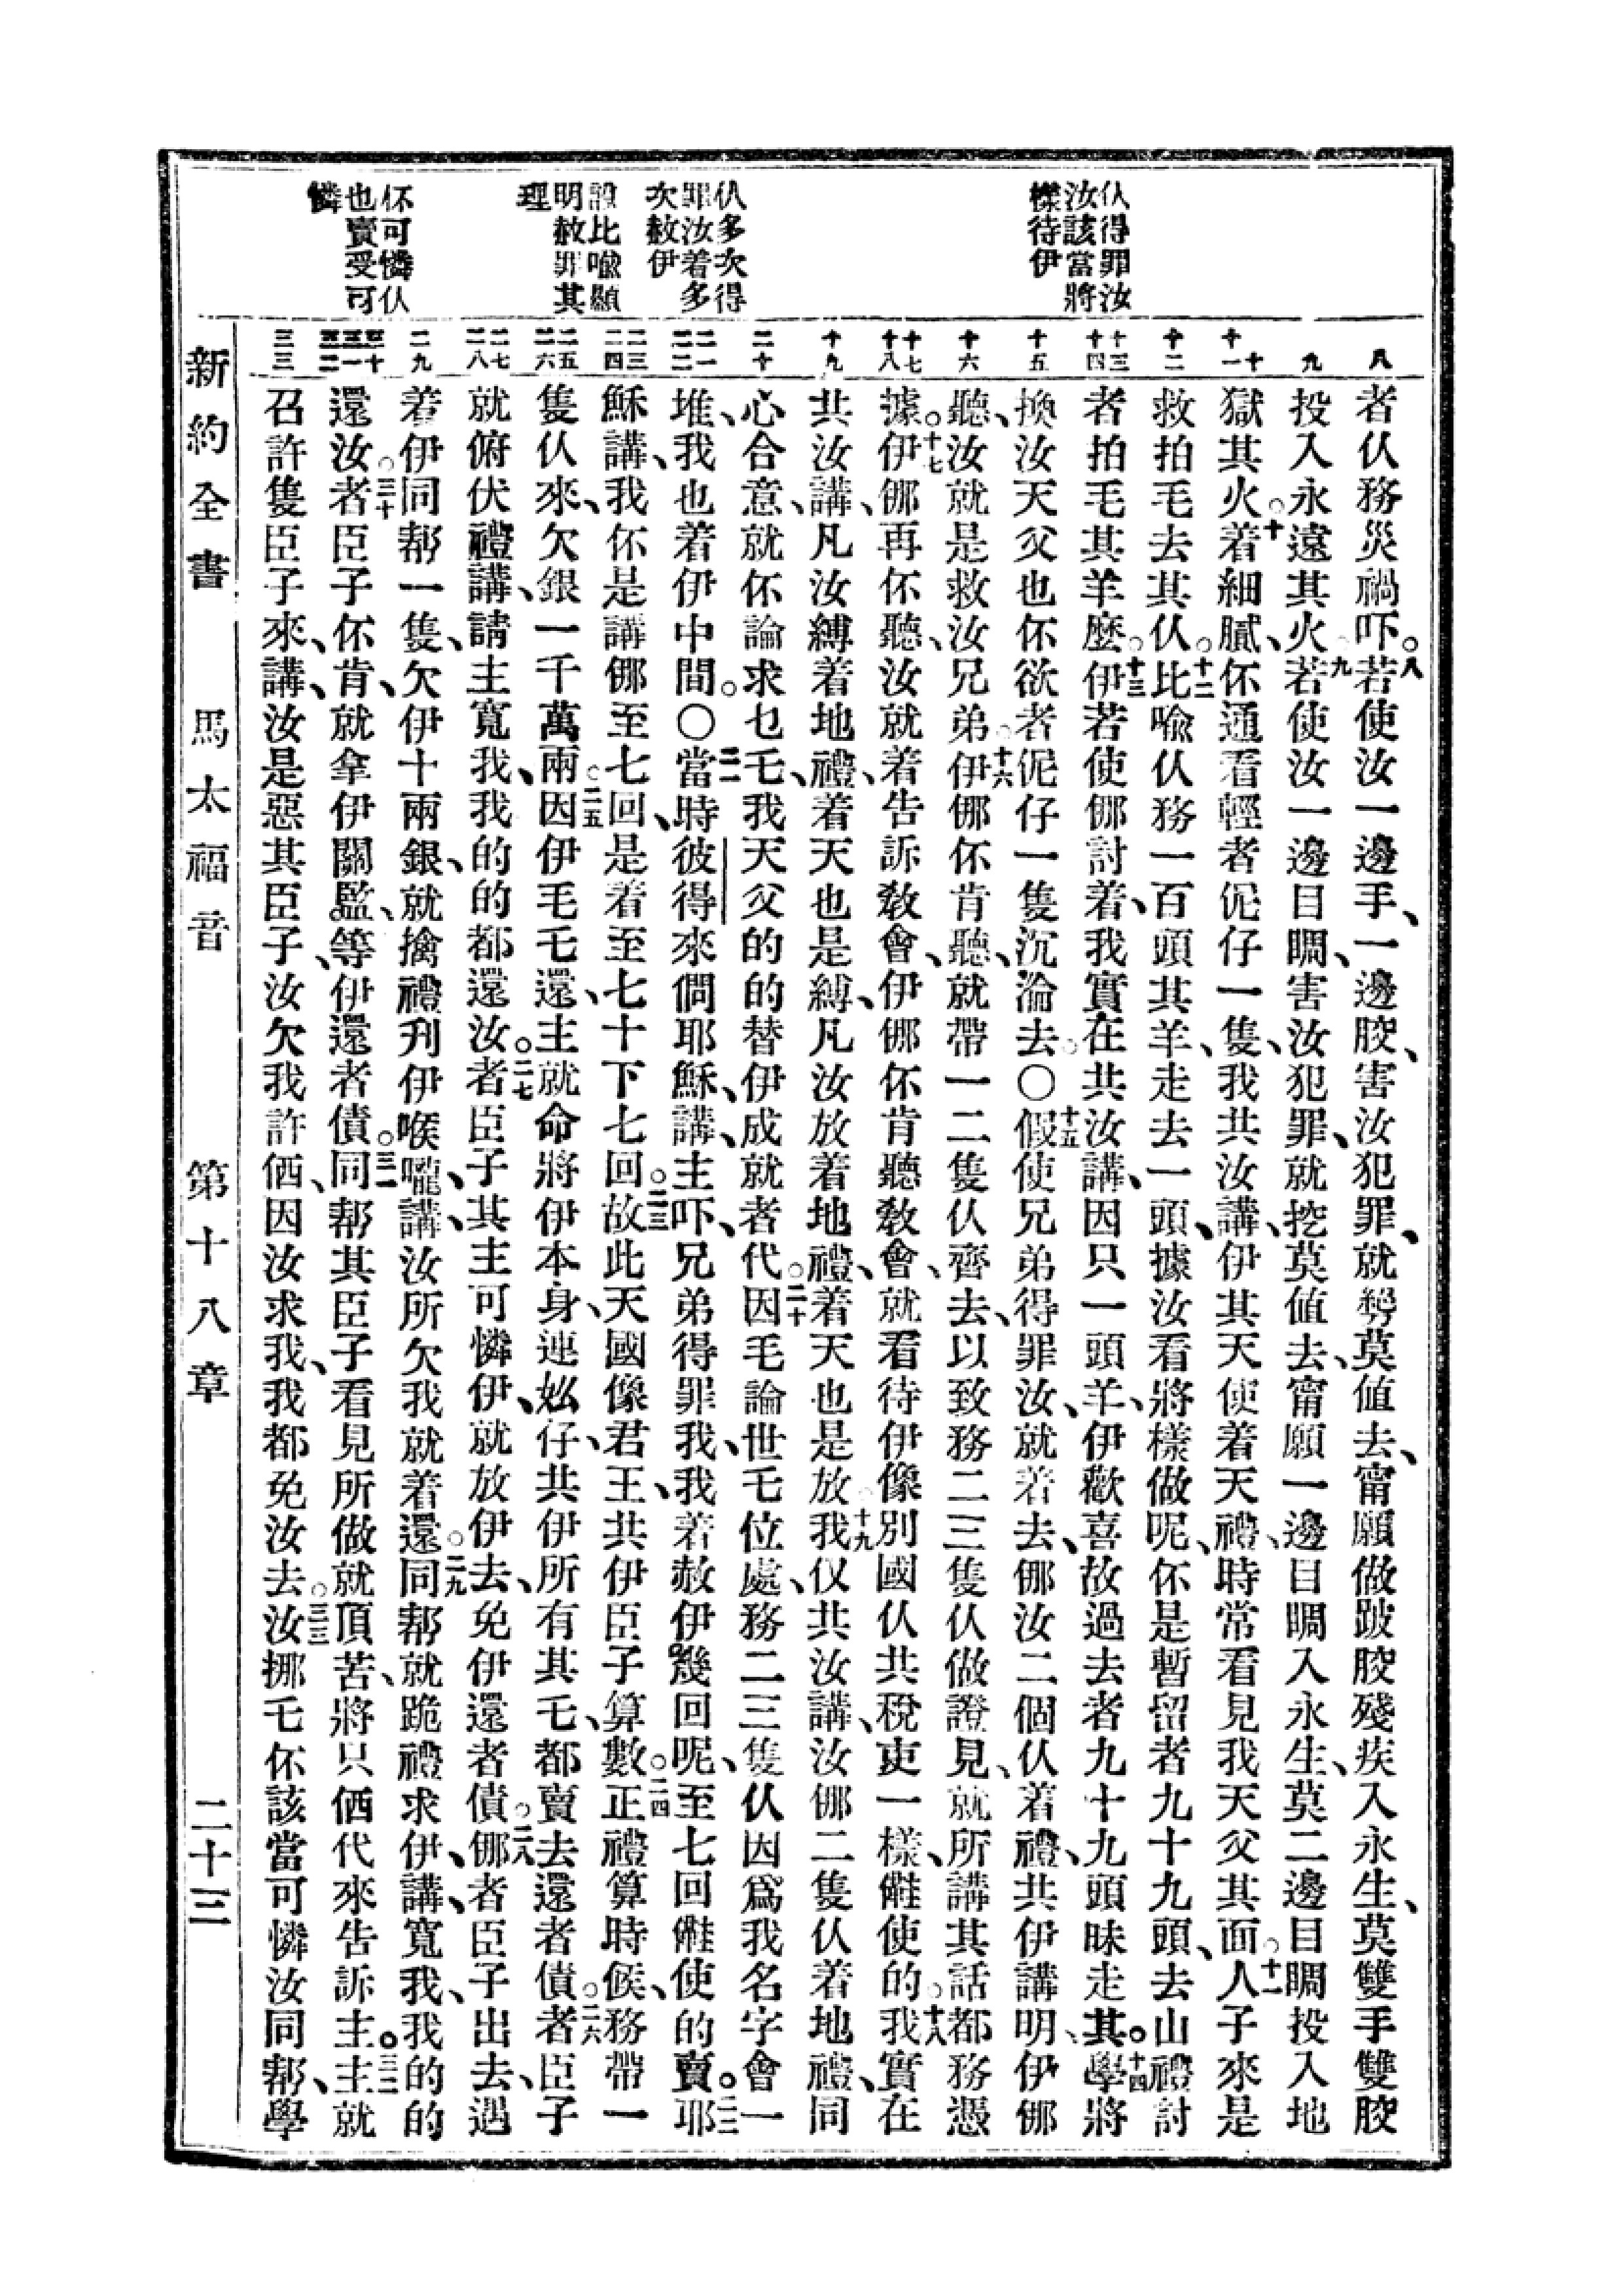 仈得罪汝
汝該當將
樣待伊
仈多次得
罪汝着多
次赦伊
設比喻顯
明赦罪其
理
伓可憐仈
也賣受可
憐
八
九
十
十一
十二
十三
十四
十五
十六
十七
十八
十九
二十
二一
二二
二三
二四
二五
二六
二七
二八
二九
三十
三一
三二
三三
者仈務災禍吓。八若使汝一邊手、一邊骹、害汝犯罪、就莫值去、甯願做跛骹殘疾入永生、莫雙手雙骹
投入永遠其火。九若使汝一邊目睭、害汝犯罪、就挖莫值去、甯願一邊目睭入永生、莫二邊目睭投入地
獄其火。十着細膩、伓通看輕者伲仔一隻、我共汝講、伊其天使着天禮、時常看見我天父其面。十一人子來是
救拍毛去其仈。十二比喻仈務一百頭其羊、走去一頭、據汝看將樣做呢、伓是暫留者九十九頭、去山禮討
者拍毛其羊麽。十三伊若使㑚討着、我實在共汝講、因只一頭羊、伊歡喜故過去者九十九頭昧走其。十四學將
換汝天父也伓欲者伲仔一隻沉淪去。〇十五假使兄弟得罪汝、就着去、㑚汝二個仈着禮、共伊講明、伊㑚
聽、汝就是救汝兄弟。十六伊㑚伓肯聽、就帶一二隻仈齊去、以致務二三隻仈做證見、就所講其話都務憑
據。十七伊㑚再伓聽、汝就着告訴敎會、伊㑚伓肯聽敎會、就看待伊像別國仈共稅吏一樣、儺使的。十八我實在
共汝講、凡汝縛着地禮、着天也是縛、凡汝放着地禮、着天也是放。十九我仅共汝講、汝㑚二隻仈着地禮、同
心合意、就伓論求乜乇、我天父的的替伊成就者代。二十因毛論世乇位處、務二三隻仈因爲我名字會一
堆、我也着伊中間。〇二一當時彼得來問耶穌、講、主吓、兄弟得罪我、我着赦伊幾回呢、至七回儺使的賣。二二耶
穌講、我伓是講㑚至七回、是着至七十下七回。二三故此天國像君王、共伊臣子算數。二四正禮算時候、務帶一
隻仈來、欠銀一千萬兩。二五因伊毛乇還、主就命將伊本身、連妣仔、共伊所有其乇、都賣去還者債。二六者臣子
就俯伏禮講、請主寬我、我的的都還汝。二七者臣子其主可憐伊、就放伊去、免伊還者債。二八㑚者臣子出去、遇
着伊同帮一隻、欠伊十兩銀、就擒禮刋伊喉嚨、講、汝所欠我就着還。二九同帮就跪禮求伊、講、寬我、我的的
還汝。三十者臣子伓肯、就拿伊關監、等伊還者債。三一同帮其臣子看見所做就頂苦、將只佰代來告訴主。三二主就
召許隻臣子來、講、汝是惡其臣子、汝欠我許佰、因汝求我、我都免汝去。三三汝挪乇伓該當可憐汝同帮、學
新約全書
馬太福音
第十八章
二十三